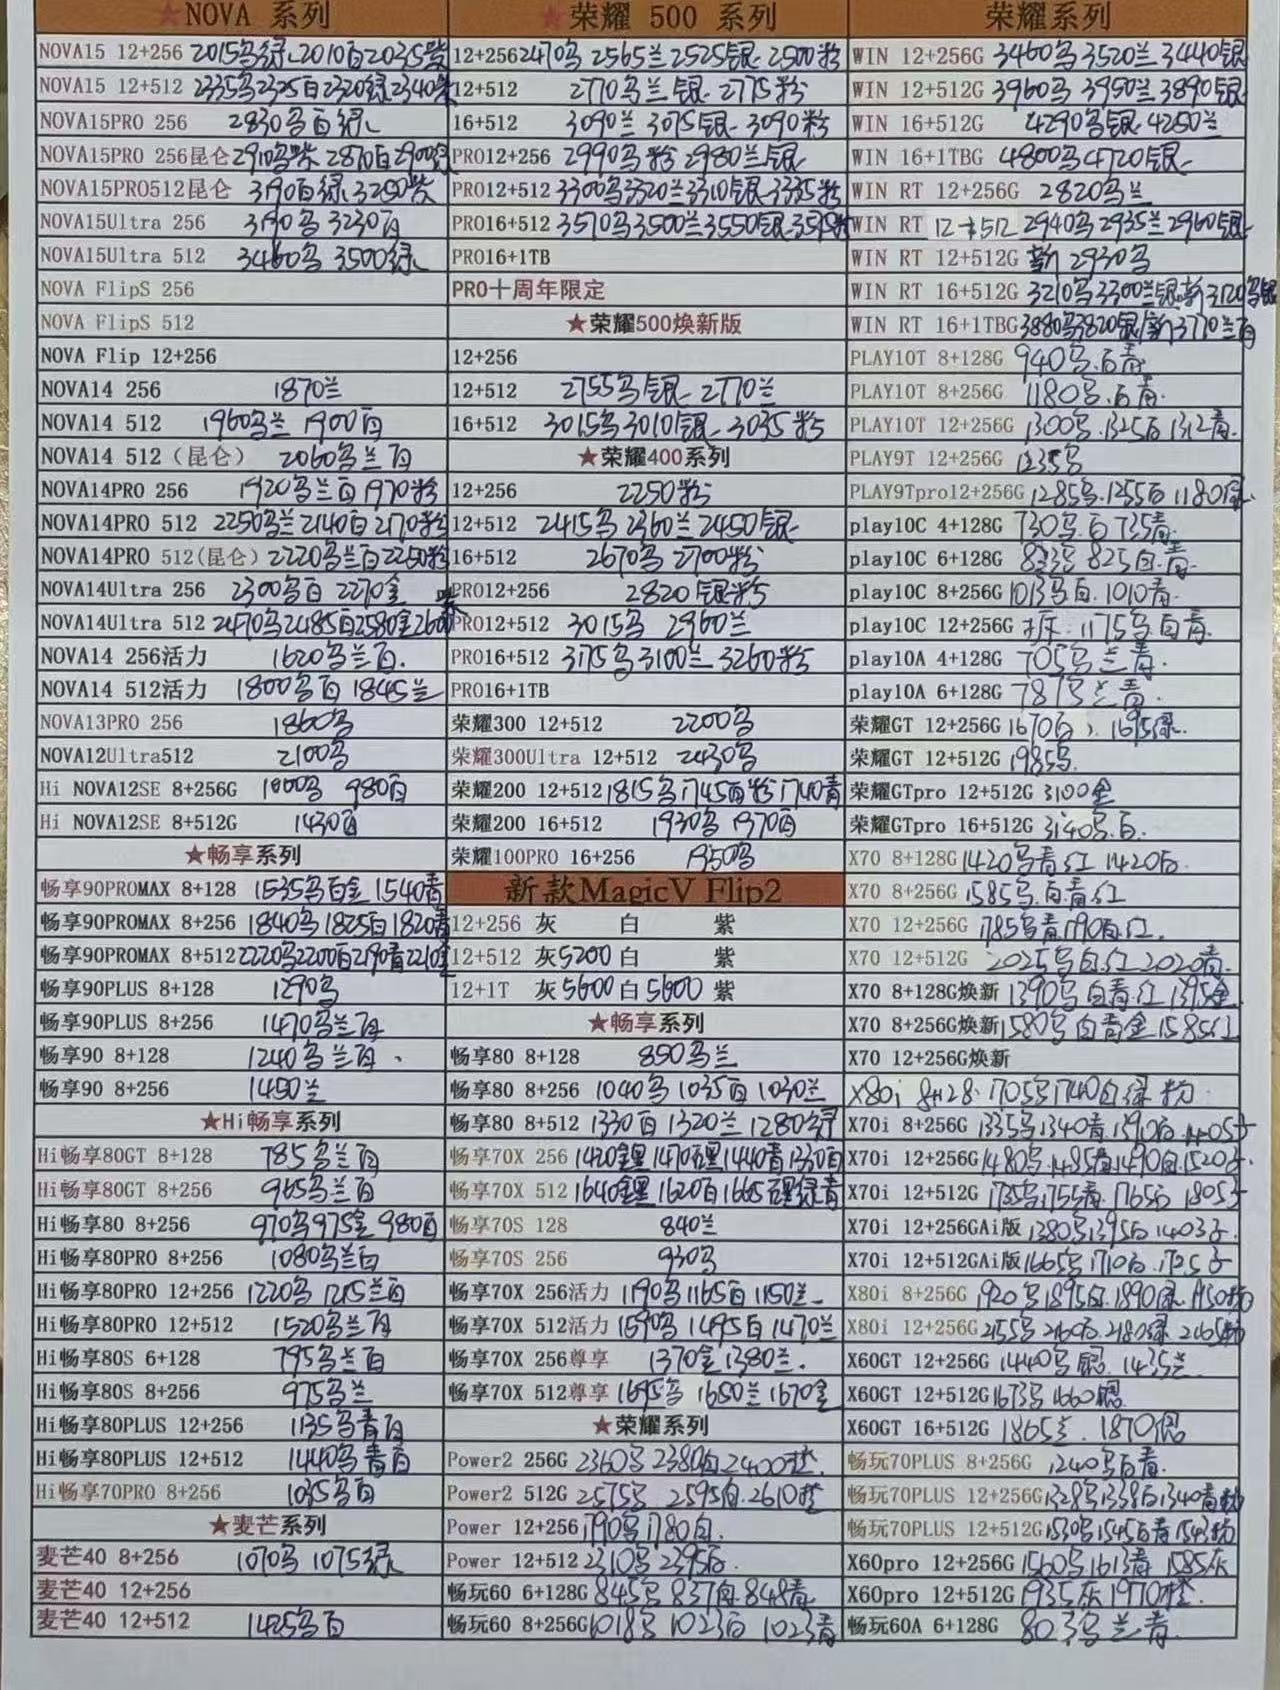 ★NOVA 系列
NOVA15 12+256 2015乌绿 2010百2035紫
NOVA15 12+512 2335乌2325白2320绿2340紫
NOVA15PRO 256 2830乌百绿
NOVA15PRO 256昆仑 2910乌紫 2870白2900绿
NOVA15PRO512昆仑 3190百绿 3250紫
NOVA15Ultra 256 3190乌 3230百
NOVA15Ultra 512 3460乌 3500绿
NOVA FlipS 256
NOVA FlipS 512
NOVA Flip 12+256
NOVA14 256 1870兰
NOVA14 512 1960乌兰 1900百
NOVA14 512（昆仑） 2060乌兰百
NOVA14PRO 256 1920乌兰百1970粉
NOVA14PRO 512 2250乌兰2140百2170粉
NOVA14PRO 512(昆仑) 2220乌兰百2250粉
NOVA14Ultra 256 2300乌百 2270金
NOVA14Ultra 512 2470乌2485百2580金2600紫
NOVA14 256活力 1620乌兰百.
NOVA14 512活力 1800乌百 1845兰
NOVA13PRO 256 1860乌
NOVA12Ultra512 2100乌
Hi NOVA12SE 8+256G 1000乌 980百
Hi NOVA12SE 8+512G 1430百
★畅享系列
畅享90PROMAX 8+128 1535乌百金 1540青
畅享90PROMAX 8+256 1840乌 1825白1820青
畅享90PROMAX 8+512 2220乌2200百2190青2210金
畅享90PLUS 8+128 1290乌
畅享90PLUS 8+256 1470乌兰百
畅享90 8+128 1240乌兰百、
畅享90 8+256 1450兰
★Hi畅享系列
Hi畅享80GT 8+128 785乌兰百
Hi畅享80GT 8+256 965乌兰百
Hi畅享80 8+256 970乌975金 980百
Hi畅享80PRO 8+256 1080乌兰白
Hi畅享80PRO 12+256 1220乌 1215兰百
Hi畅享80PRO 12+512 1520乌兰百
Hi畅享80S 6+128 795乌兰百
Hi畅享80S 8+256 975乌兰
Hi畅享80PLUS 12+256 1135乌青百
Hi畅享80PLUS 12+512 1440乌青百
Hi畅享70PRO 8+256 1035乌百
★麦芒系列
麦芒40 8+256 1070乌 1075绿
麦芒40 12+256
麦芒40 12+512 1425乌百
★荣耀 500 系列
12+256 2470乌 2565兰2525银 2500粉
12+512 2770乌兰银 2775粉
16+512 3090兰 3075银 3090粉
PRO12+256 2990乌粉 2980兰银
PRO12+512 3300乌3320兰3310银 3335粉
PRO16+512 3570乌3500兰3550银3575粉
PRO16+1TB
PRO十周年限定
★荣耀500焕新版
12+256
12+512 2755乌银 2770兰
16+512 3015乌3010银 3035粉
★荣耀400系列
12+256 2250粉
12+512 2415乌 2360兰2450银
16+512 2670乌 2700粉
PRO12+256 2820银粉
PRO12+512 3015乌 2960兰
PRO16+512 3175乌3100兰 3260粉
PRO16+1TB
荣耀300 12+512 2200乌
荣耀300Ultra 12+512 2430乌
荣耀200 12+512 1815乌1745百粉1740青
荣耀200 16+512 1930乌 1970百
荣耀100PRO 16+256 1950乌
新款MagicV Flip2
12+256 灰 白 紫
12+512 灰5200 白 紫
12+1T 灰5600 白5600 紫
★畅享系列
畅享80 8+128 850乌兰
畅享80 8+256 1040乌 1035百 1030兰
畅享80 8+512 1330百 1320兰 1280乌绿
畅享70X 256 1420金黑 1470石黑1440青1330百
畅享70X 512 1640金黑 1620百1665石黑绿青
畅享70S 128 840兰
畅享70S 256 930乌
畅享70X 256活力 1190乌 1165百 1150兰
畅享70X 512活力 1590乌 1495百1470兰
畅享70X 256尊享 1370金1380兰.
畅享70X 512尊享 1695乌 1680兰 1670金
★荣耀系列
Power2 256G 2360乌 2380白 2400橙.
Power2 512G 2575乌 2595白.2610橙
Power 12+256 1790乌1780白.
Power 12+512 2310乌 2395百.
畅玩60 6+128G 845乌 837白848青
畅玩60 8+256G 1018乌 1023百 1023青
荣耀系列
WIN 12+256G 3460乌3520兰3440银
WIN 12+512G 3960乌 3950兰3890银
WIN 16+512G 4290乌银 4250兰
WIN 16+1TBG 4800乌4720银
WIN RT 12+256G 2820乌兰
WIN RT 12+512 2940乌2935兰2960银
WIN RT 12+512G 新 2930乌
WIN RT 16+512G 3210乌3300兰银新3120乌银
WIN RT 16+1TBG 3880乌3820银新3770兰百
PLAY10T 8+128G 940乌.百青
PLAY10T 8+256G 1180乌.百青.
PLAY10T 12+256G 1300乌.1325百 1312青.
PLAY9T 12+256G 1235乌
PLAY9Tpro12+256G 1285乌.1255百 1180绿.
play10C 4+128G 730乌.百 735青.
play10C 6+128G 825白.青.
play10C 8+256G 1013乌百.1010青.
play10C 12+256G 1175乌百青.
play10A 4+128G 705乌兰青.
play10A 6+128G 兰青.
荣耀GT 12+256G 1670百 1695绿.
荣耀GT 12+512G 1985乌.
荣耀GTpro 12+512G 3100金
荣耀GTpro 16+512G 3140乌.百.
X70 8+128G 1420乌青红 1420百.
X70 8+256G 1585乌.白青红
X70 12+256G 1785乌青1790百红.
X70 12+512G 2025乌白.红 2020青.
X70 8+128G焕新 1390乌白青红 1395金
X70 8+256G焕新 1580乌白青金1585红
X70 12+256G焕新
X80i 8+128. 1705乌1740白绿粉
X70i 8+256G 1335乌1340青1390百.1405子
X70i 12+256G 1480乌.1485青1490白.1520子.
X70i 12+512G 1735乌1755青.1765百 1805子
X70i 12+256GAi版 1380乌1395百 1403子.
X70i 12+512GAi版 1665乌1710百.1725子
X80i 8+256G 1920乌1895白.1890绿.1950粉
X80i 12+256G 2155乌 2160百.2180绿 2165粉
X60GT 12+256G 1440乌银.1435兰
X60GT 12+512G 1673乌1660银.
X60GT 16+512G 1865兰. 1870银
畅玩70PLUS 8+256G 1240乌百青.
畅玩70PLUS 12+256G 1328乌1338百1340青粉
畅玩70PLUS 12+512G 1530乌1545百青1543粉
X60pro 12+256G 1560乌1613青 1585灰
X60pro 12+512G 1935灰 1970橙.
畅玩60A 6+128G 803乌兰青.